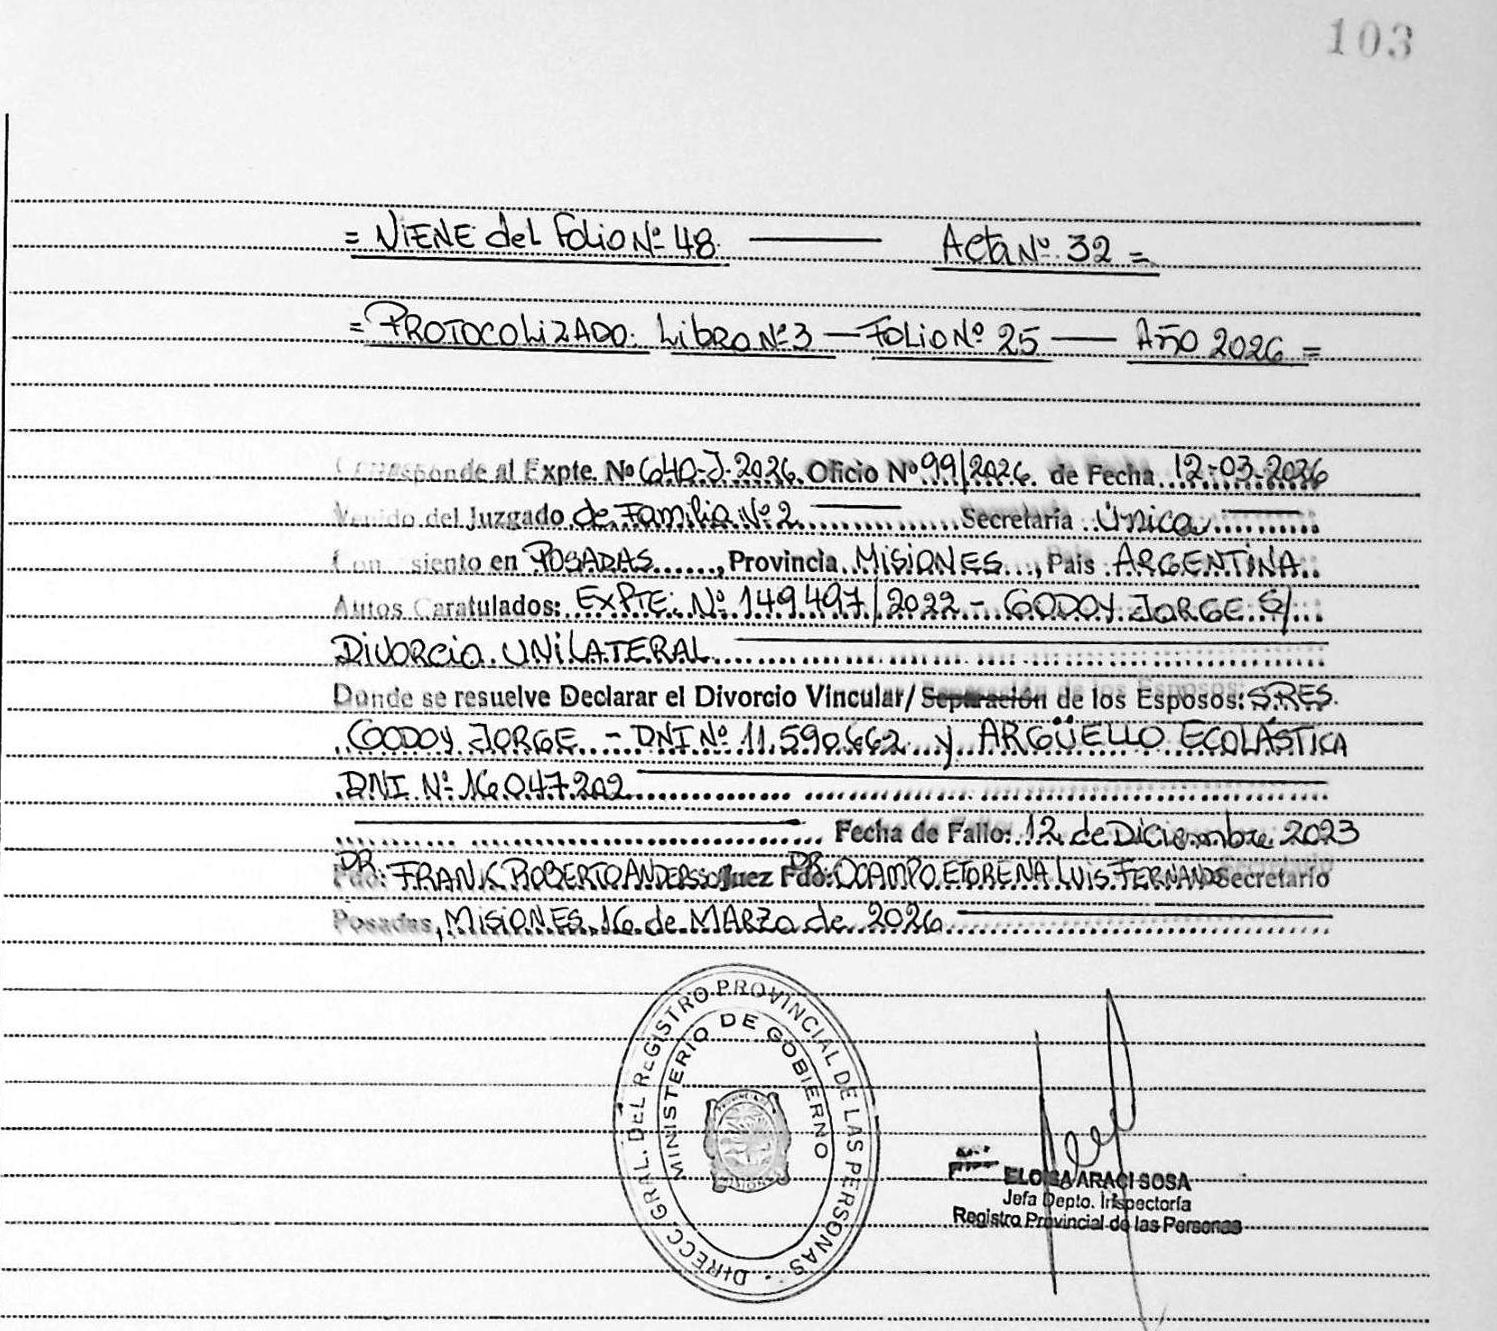 103
= VIENE del Folio Nº 48 —— Acta Nº 32 =
= PROTOCOLIZADO: Libro Nº 3 — Folio Nº 25 —— Año 2026 =
Corresponde al Expte. Nº 640-J-2026 Oficio Nº 99/2026 de Fecha 12-03-2026
Venido del Juzgado de Familia Nº 2 Secretaria Única
Con asiento en POSADAS, Provincia MISIONES, País ARGENTINA
Autos Caratulados: EXPTE: Nº 149497/2022 - GODOY JORGE S/
DIVORCIO UNILATERAL
Donde se resuelve Declarar el Divorcio Vincular/ Separación de los Esposos: SRES.
GODOY JORGE - DNI Nº 11.590.662 y ARGÜELLO ECOLÁSTICA
DNI Nº 16.047.202
Fecha de Fallo: 12 de Diciembre 2023
Fdo: DR. FRANK ROBERTO ANDERSSO Juez Fdo: DR. OCAMPO ETORENA LUIS FERNANDO Secretario
Posadas, MISIONES, 16 de MARZO de 2026
DIRECC. GRAL. DEL REGISTRO PROVINCIAL DE LAS PERSONAS
MINISTERIO DE GOBIERNO
ELOISA ARACI SOSA
Jefa Depto. Inspectoría
Registro Provincial de las Personas